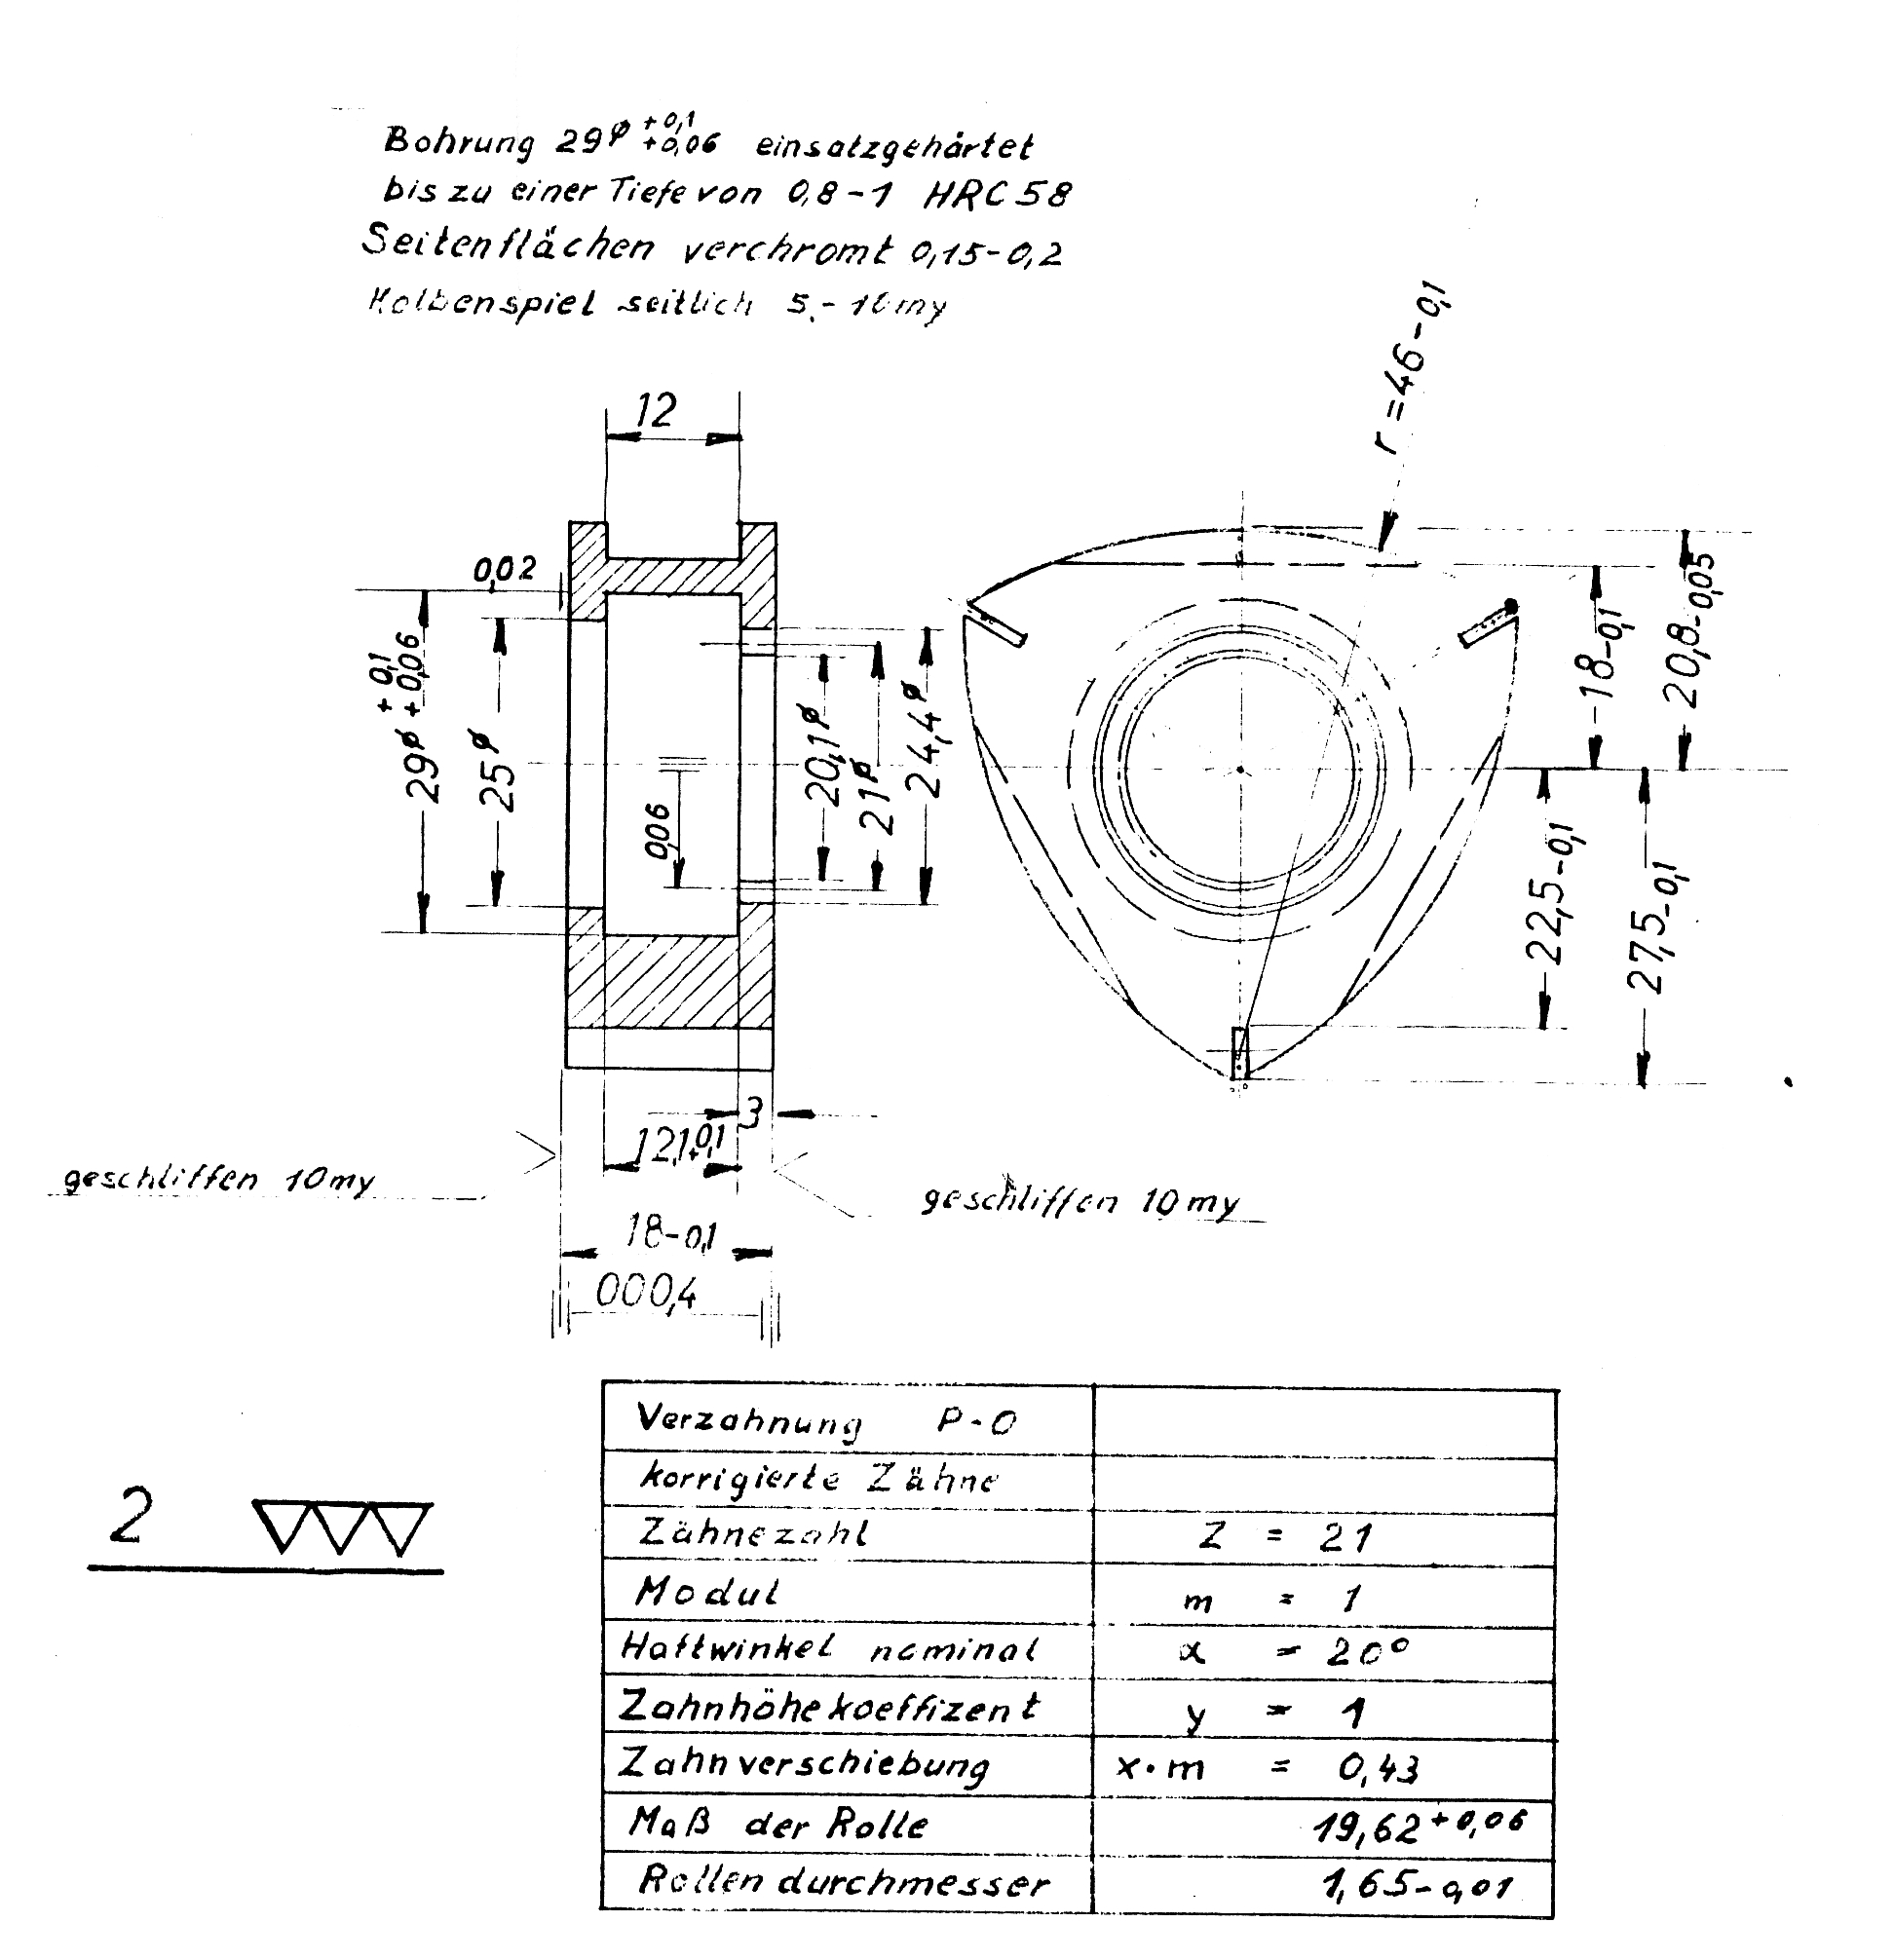 Bohrung 29⌀ +0,1 +0,06 einsatzgehärtet
bis zu einer Tiefe von 0,8-1 HRC 58
Seitenflächen verchromt 0,15-0,2
Kolbenspiel seitlich 5-10my
r=46-0,1
12
0,02
29⌀ +0,1 +0,06
25⌀
0,06
20,1⌀
21⌀
24,4⌀
18-0,1
20,8-0,05
22,5-0,1
27,5-0,1
3
12,1+0,1
geschliffen 10my
geschliffen 10my
18-0,1
000,4
2 ▽▽▽
Verzahnung P-0
korrigierte Zähne
Zähnezahl Z = 21
Modul m = 1
Haftwinkel nominal α = 20°
Zahnhöhekoeffizent y = 1
Zahnverschiebung x·m = 0,43
Maß der Rolle 19,62+0,06
Rollendurchmesser 1,65-0,01